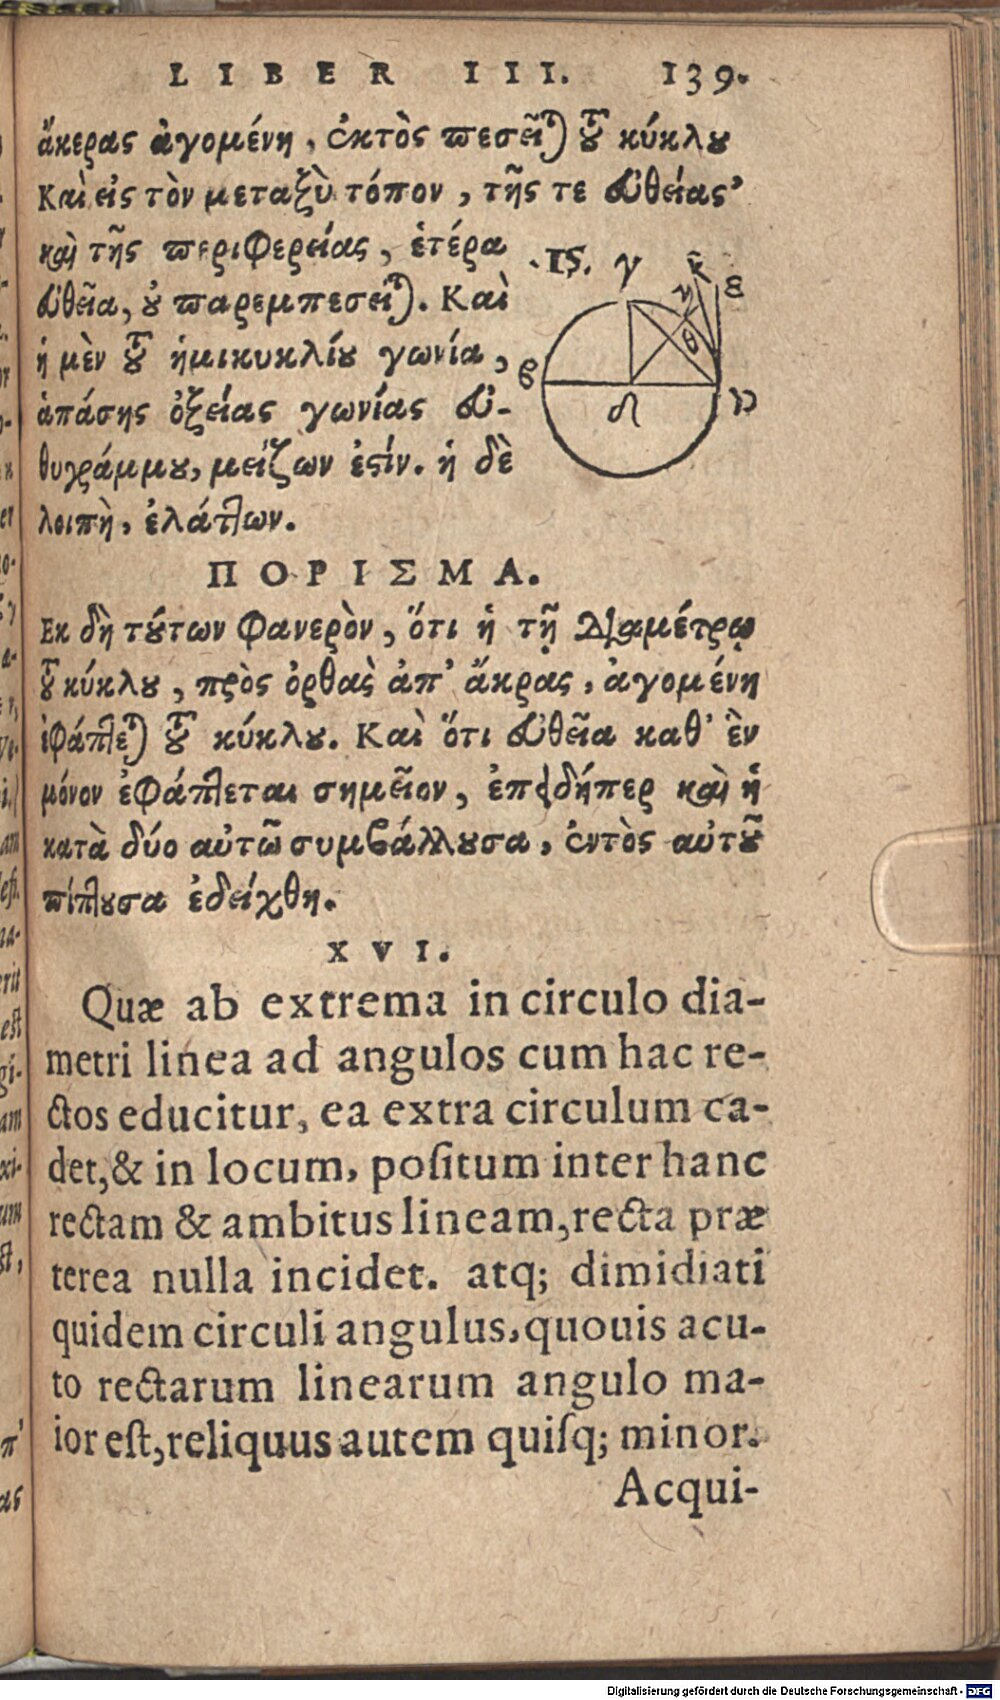 LIBER III. 139.
ἄκερας ἀγομένη, ἐκτὸς πεσεῖται τοῦ κύκλου
Καὶ εἰς τὸν μεταξὺ τόπον, τῆς τε εὐθείας
καὶ τῆς περιφερείας, ἑτέρα
εὐθεῖα, οὐ παρεμπεσεῖται. Καὶ
ἡ μὲν τοῦ ἡμικυκλίου γωνία,
ἁπάσης ὀξείας γωνίας εὐ-
θυγράμμου, μείζων ἐστίν. ἡ δὲ
λοιπὴ, ἐλάττων.
.ις. γ
ζ
ε
η
θ
β
δ
ΠΟΡΙΣΜΑ.
Εκ δὴ τούτων φανερὸν, ὅτι ἡ τῇ διαμέτρῳ
τοῦ κύκλου, πρὸς ὀρθὰς ἀπ' ἄκρας, ἀγομένη
ἐφάπτεται τοῦ κύκλου. Καὶ ὅτι εὐθεῖα καθ' ἓν
μόνον ἐφάπτεται σημεῖον, ἐπειδήπερ καὶ ἡ
κατὰ δύο αὐτῷ συμβάλλουσα, ἐντὸς αὐτοῦ
πίπτουσα ἐδείχθη.
XVI.
Quæ ab extrema in circulo dia-
metri linea ad angulos cum hac re-
ctos educitur, ea extra circulum ca-
det,& in locum, poſitum inter hanc
rectam & ambitus lineam,recta præ
terea nulla incidet. atq; dimidiati
quidem circuli angulus,quouis acu-
to rectarum linearum angulo ma-
ior eſt,reliquus autem quiſq; minor.
Acqui-
Digitalisierung gefördert durch die Deutsche Forschungsgemeinschaft - DFG